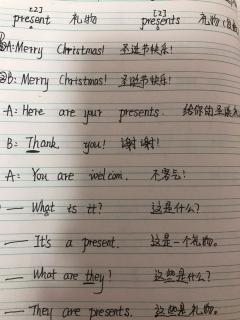 [z] [z]
present 礼物 presents 礼物
A: Merry Christmas! 圣诞节快乐!
B: Merry Christmas! 圣诞节快乐!
A: Here are your presents. 给你的圣诞
B: Thank you! 谢谢!
A: You are welcom. 不客气!
— What is it? 这是什么?
— It's a present. 这是一个礼物。
— What are they? 这些是什么?
— They are presents. 这些是礼物。